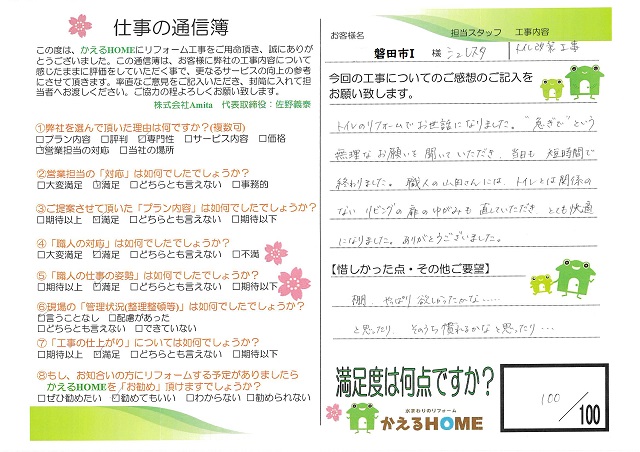 仕事の通信簿
この度は、かえるHOMEにリフォーム工事をご用命頂き、誠にありが
とうございました。この通信簿は、お客様に弊社の工事内容について
感じたままに評価をしていただく事で、更なるサービスの向上の参考
にさせて頂きます。率直なご意見をご記入いただき、封筒に入れて担
当者へお渡しください。ご協力の程よろしくお願い致します。
株式会社Amita 代表取締役:佐野義泰
①弊社を選んで頂いた理由は何ですか?(複数可)
□プラン内容 □評判 ☑専門性 □サービス内容 □価格
☑営業担当の対応 □当社の場所
②営業担当の「対応」は如何でしたでしょうか?
□大変満足 ☑満足 □どちらとも言えない □事務的
③ご提案させて頂いた「プラン内容」は如何でしたでしょうか?
□期待以上 ☑満足 □どちらとも言えない □期待以下
④「職人の対応」は如何でしたでしょうか?
□大変満足 ☑満足 □どちらとも言えない □不満
⑤「職人の仕事の姿勢」は如何でしたでしょうか?
□期待以上 ☑満足 □どちらとも言えない □期待以下
⑥現場の「管理状況(整理整頓等)」は如何でしたでしょうか?
☑言うことなし □配慮があった
□どちらとも言えない □できていない
⑦「工事の仕上がり」については如何でしたでしょうか?
□期待以上 ☑満足 □どちらとも言えない □期待以下
⑧もし、お知合いの方にリフォームする予定がありましたら
かえるHOMEを「お勧め」頂けますでしょうか?
□ぜひ勧めたい ☑勧めてもいい □わからない □勧められない
お客様名 担当スタッフ 工事内容
磐田市I 様 トイレ改装工事
今回の工事についてのご感想のご記入を
お願い致します。
トイレのリフォームでお世話になりました。"急ぎで"という
無理なお願いを聞いていただき、当日も短時間で
終わりました。職人の山田さんには、トイレとは関係の
ない リビングの扉のゆがみも直していただき とても快適
になりました。ありがとうございました。
【惜しかった点・その他ご要望】
棚、やっぱり欲しかったかな……
と思ったり、そのうち慣れるかなと思ったり…
満足度は何点ですか?
100/100
水まわりのリフォーム
かえるHOME